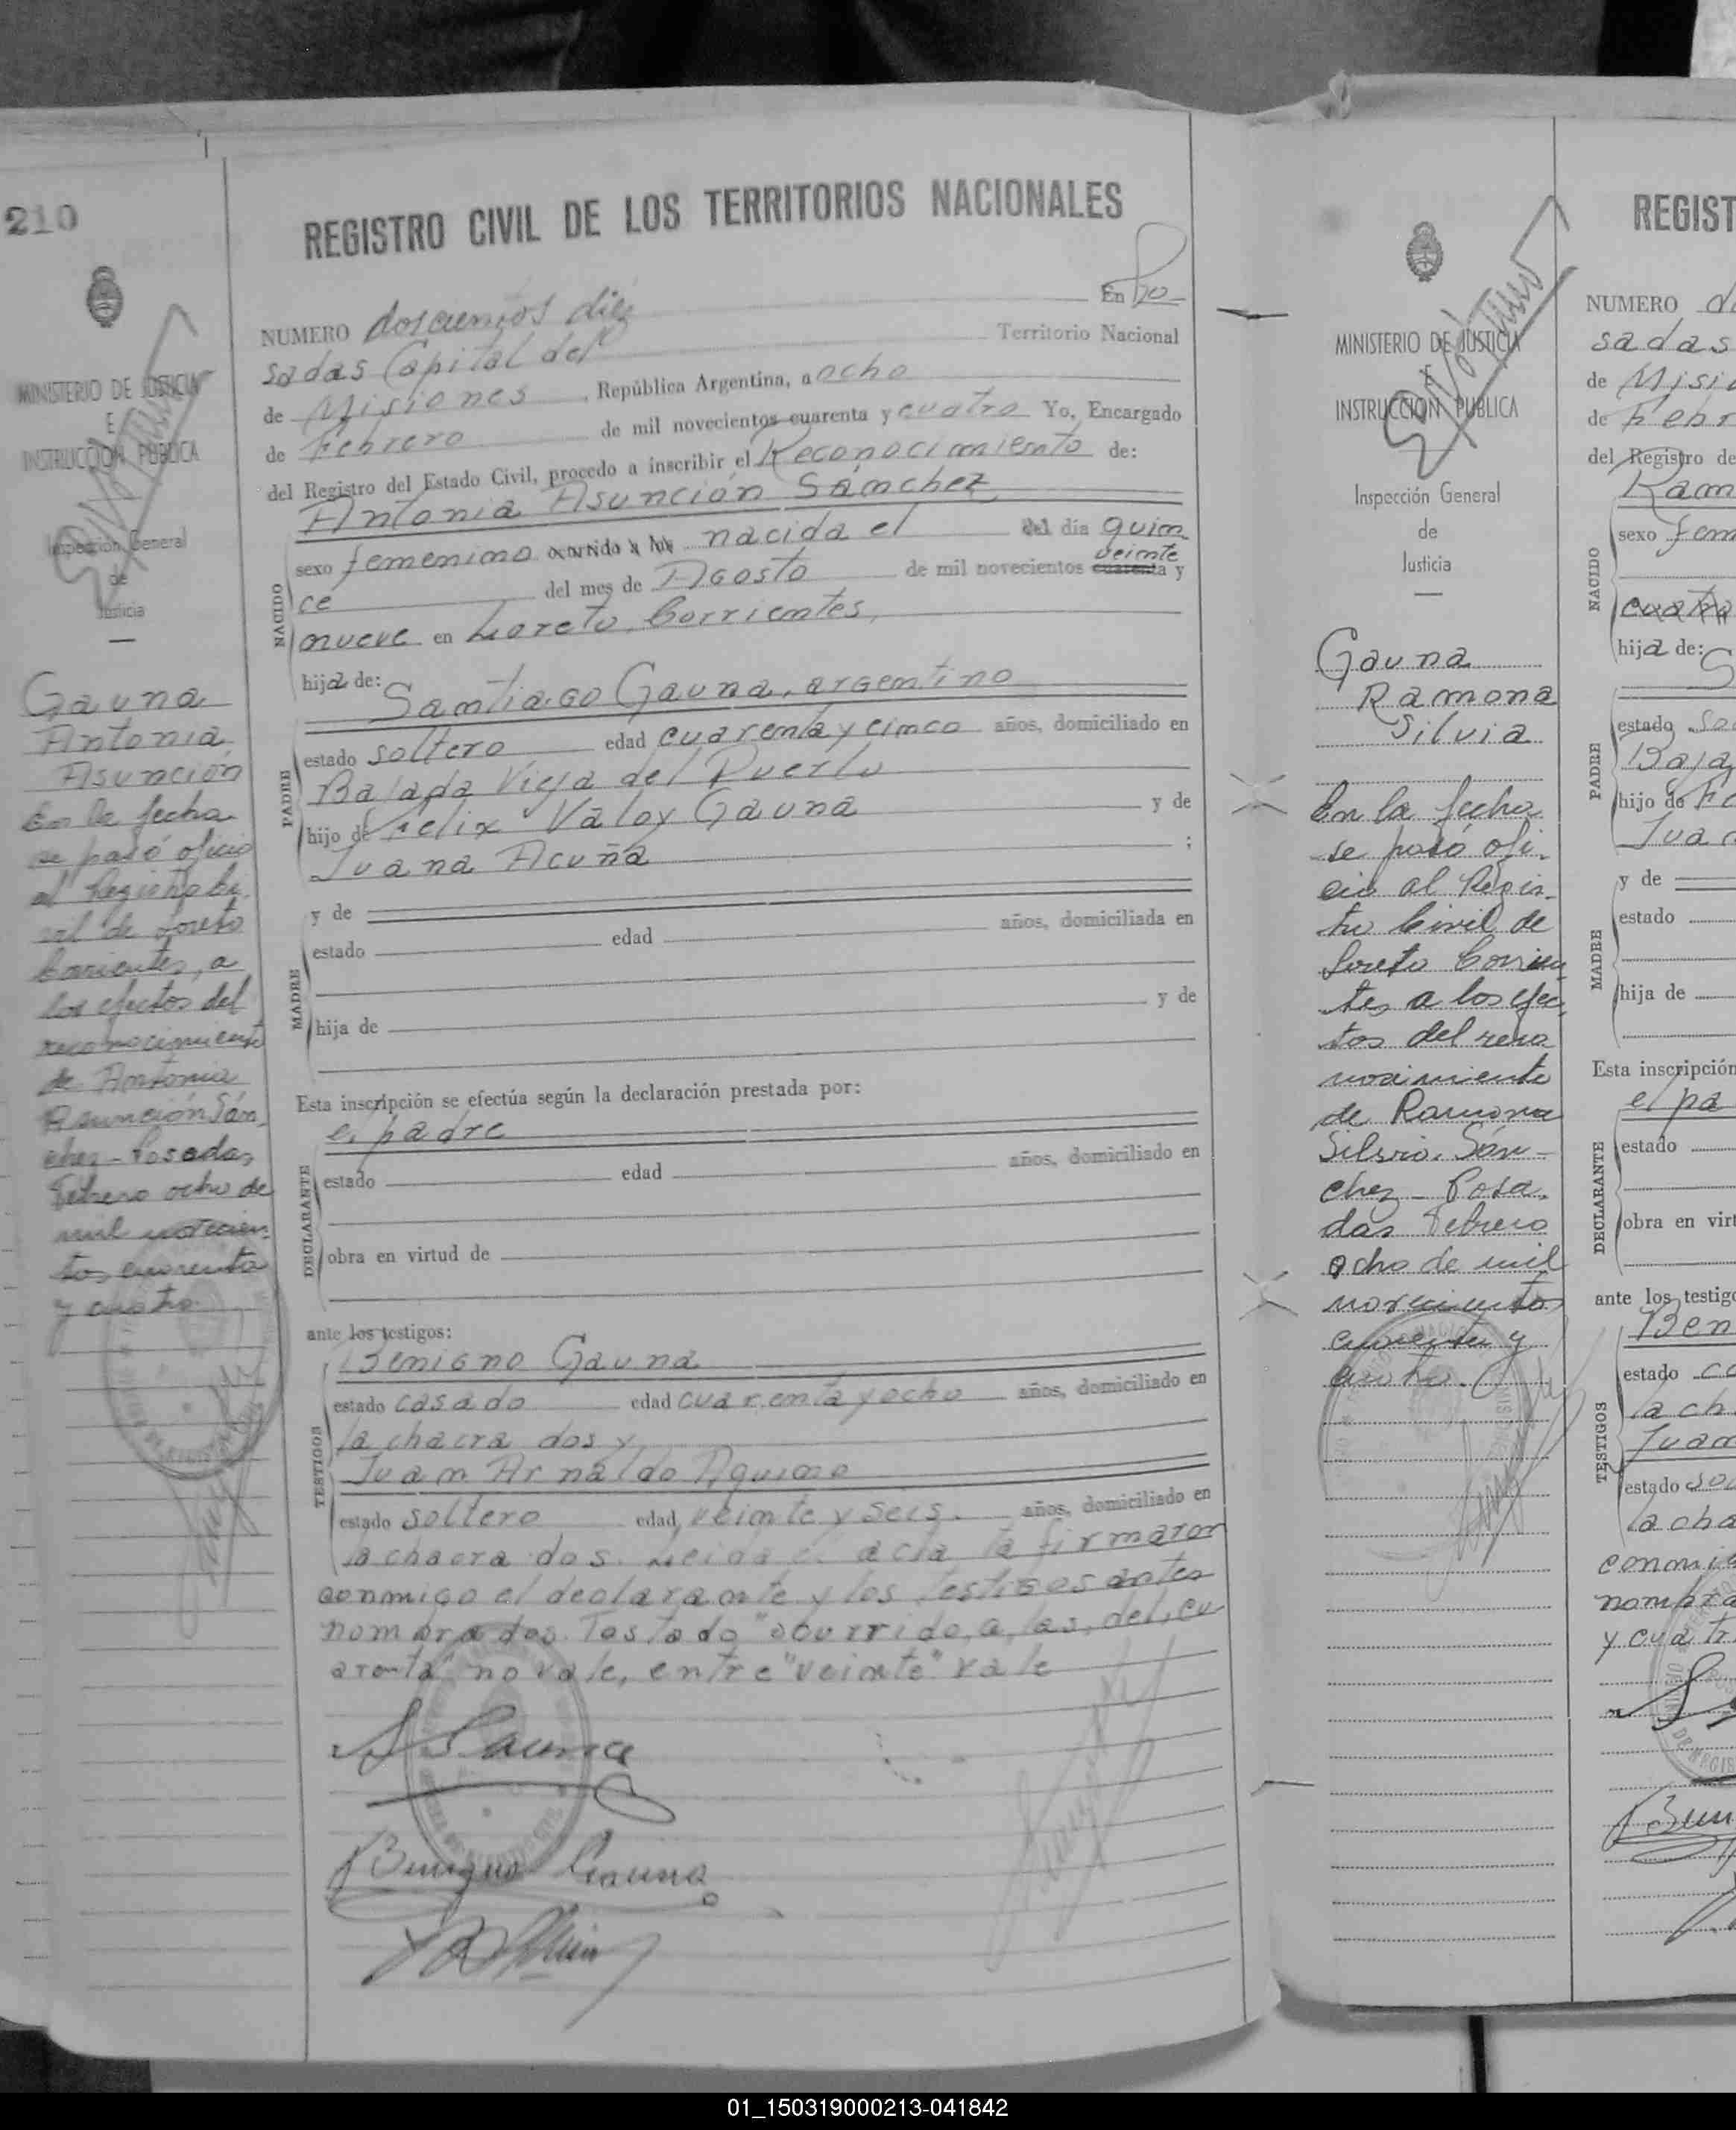 210
MINISTERIO DE JUSTICIA
E
INSTRUCCION PUBLICA
Inspección General
de
Justicia
Gauna
Antonia
Asunción
En la fecha
se pasó oficio
al Registro Ci-
vil de Loreto
Corrientes, a
los efectos del
reconocimiento
de Antonia
Asunción Sán-
chez - Posadas,
Febrero ocho de
mil novecien-
tos cuarenta
y cuatro.
REGISTRO CIVIL DE LOS TERRITORIOS NACIONALES
NUMERO doscientos diez En Po-
sadas Capital del Territorio Nacional
de Misiones, República Argentina, a ocho
de Febrero de mil novecientos cuarenta y cuatro Yo, Encargado
del Registro del Estado Civil, procedo a inscribir el Reconocimiento de:
NACIDO
Antonia Asunción Sánchez
sexo femenino ocurrido a las nacida el del día quin-
ce del mes de Agosto de mil novecientos cuarenta veinte y
nueve en Loreto, Corrientes,
hija de:
PADRE
Santiago Gauna, argentino
estado soltero edad cuarenta y cinco años, domiciliado en
Bajada Vieja del Puerto
hijo de Felix Valoy Gauna y de
Juana Acuña ;
MADRE
y de
estado edad años, domiciliada en
hija de y de
Esta inscripción se efectúa según la declaración prestada por:
DECLARANTE
el padre
estado edad años, domiciliado en
obra en virtud de
ante los testigos:
TESTIGOS
Benigno Gauna
estado casado edad cuarenta y ocho años, domiciliado en
la chacra dos y
Juan Arnaldo Aquino
estado soltero edad veinte y seis. años, domiciliado en
la chacra dos. Leida el acta la firmaron
conmigo el declarante y los testigos antes
nombrados. Testado "ocurrido, a, las, del, cu-
arenta" no vale, entre "veinte" vale
S Gauna
Benigno Gauna
MINISTERIO DE JUSTICIA
E
INSTRUCCION PUBLICA
Inspección General
de
Justicia
Gauna
Ramona
Silvia
En la fecha
se pasó ofi-
cio al Regis-
tro Civil de
Loreto Corrien-
tes a los efec-
tos del reco-
nocimiento
de Ramona
Silvia Sán-
chez - Posa-
das Febrero
ocho de mil
novecientos
cuarenta y
cuatro.
REGIST
NUMERO d
sadas
de Misi
de Febr
del Registro de
NACIDO
Ram
sexo fem
cuatro
hija de:
PADRE
S
estado so
Baja
hijo de Fe
Jua
MADRE
y de
estado
hija de
Esta inscripción
DECLARANTE
el pa
estado
obra en virt
ante los testigo
TESTIGOS
Ben
estado ca
la ch
Juan
estado sol
la cha
conmig
nombra
y cuatr
01_150319000213-041842